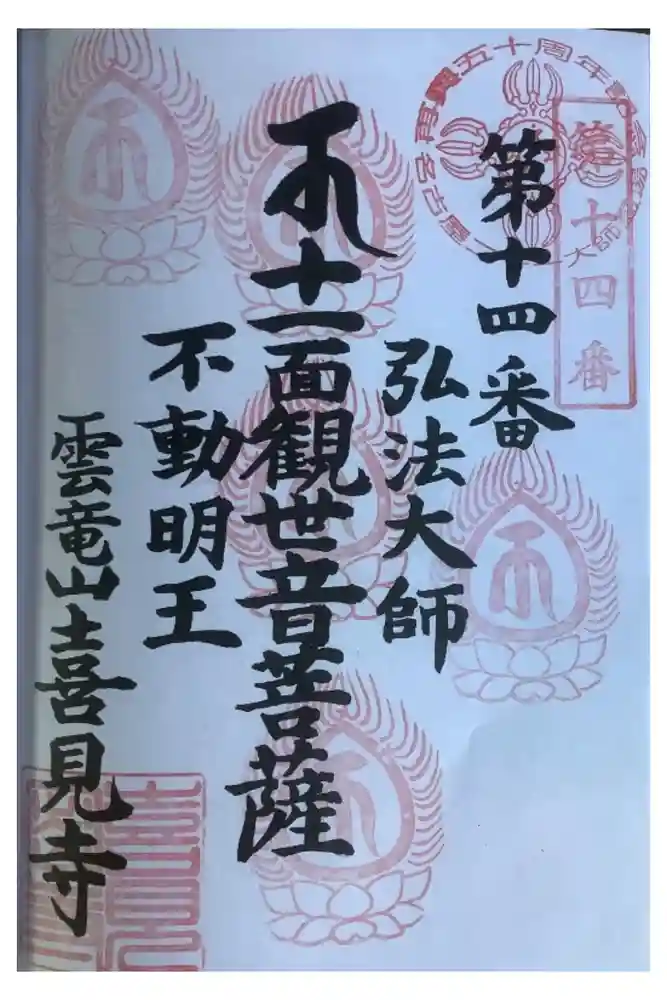 第十四番
興五十周年
第十四番
弘法大師
十一面観世音菩薩
不動明王
雲竜山喜見寺
喜見